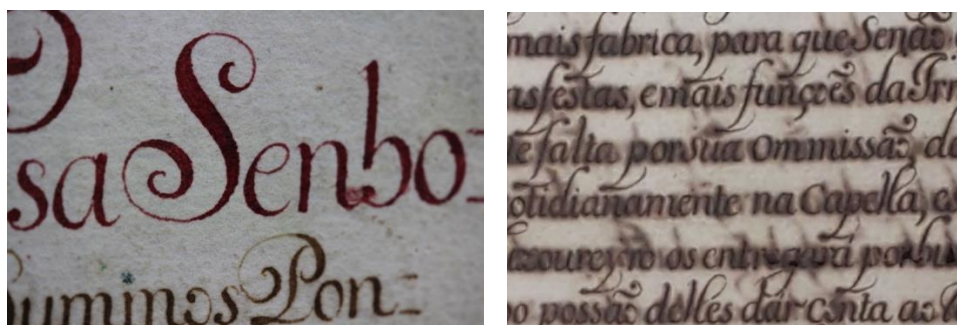 sa Senho-
luminosPon=
mais fabrica, para que Senaõ
as festas, e mais funçoẽs da Irr
e falta por sua Ommissaõ, do
otidianamente na Capella, es
azoureyro os entregará por bu
o possaõ delles dár cõnta ao